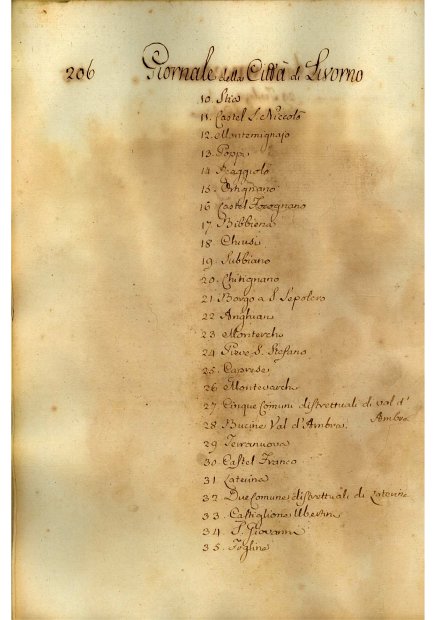 206 Giornale della Città di Livorno
10. Stia
11. Castel S. Niccolò
12. Montemignajo
13. Poppi
14. Raggiolo
15. Ortignano
16. Castel Focognano
17. Bibbiena
18. Chiusi
19. Subbiano
20. Chitignano
21. Borgo a S. Sepolcro
22. Anghiari
23. Monterchi
24. Pieve S. Stefano
25. Caprese
26. Montevarchi
27. Cinque Comuni distrettuali di val d'
Ambra
28. Bucine Val d'Ambra
29. Terranuova
30. Castel Franco
31. Laterina
32. Due Comuni distrettuali di Laterina
33. Castiglione Ubertini
34. S. Giovanni
35. Figline